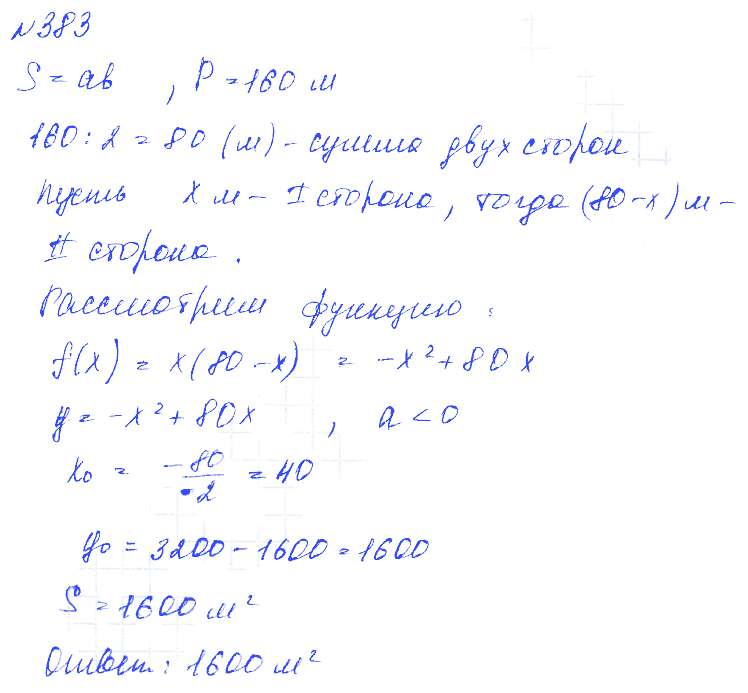 №383
S = ab , P = 160 м
160 : 2 = 80 (м) - сумма двух сторон
Пусть x м - I сторона, тогда (80-x) м -
II сторона.
Рассмотрим функцию:
f(x) = x(80-x) = -x² + 80x
y = -x² + 80x , a < 0
x₀ = -80/-2 = 40
y₀ = 3200 - 1600 = 1600
S = 1600 м²
Ответ: 1600 м²